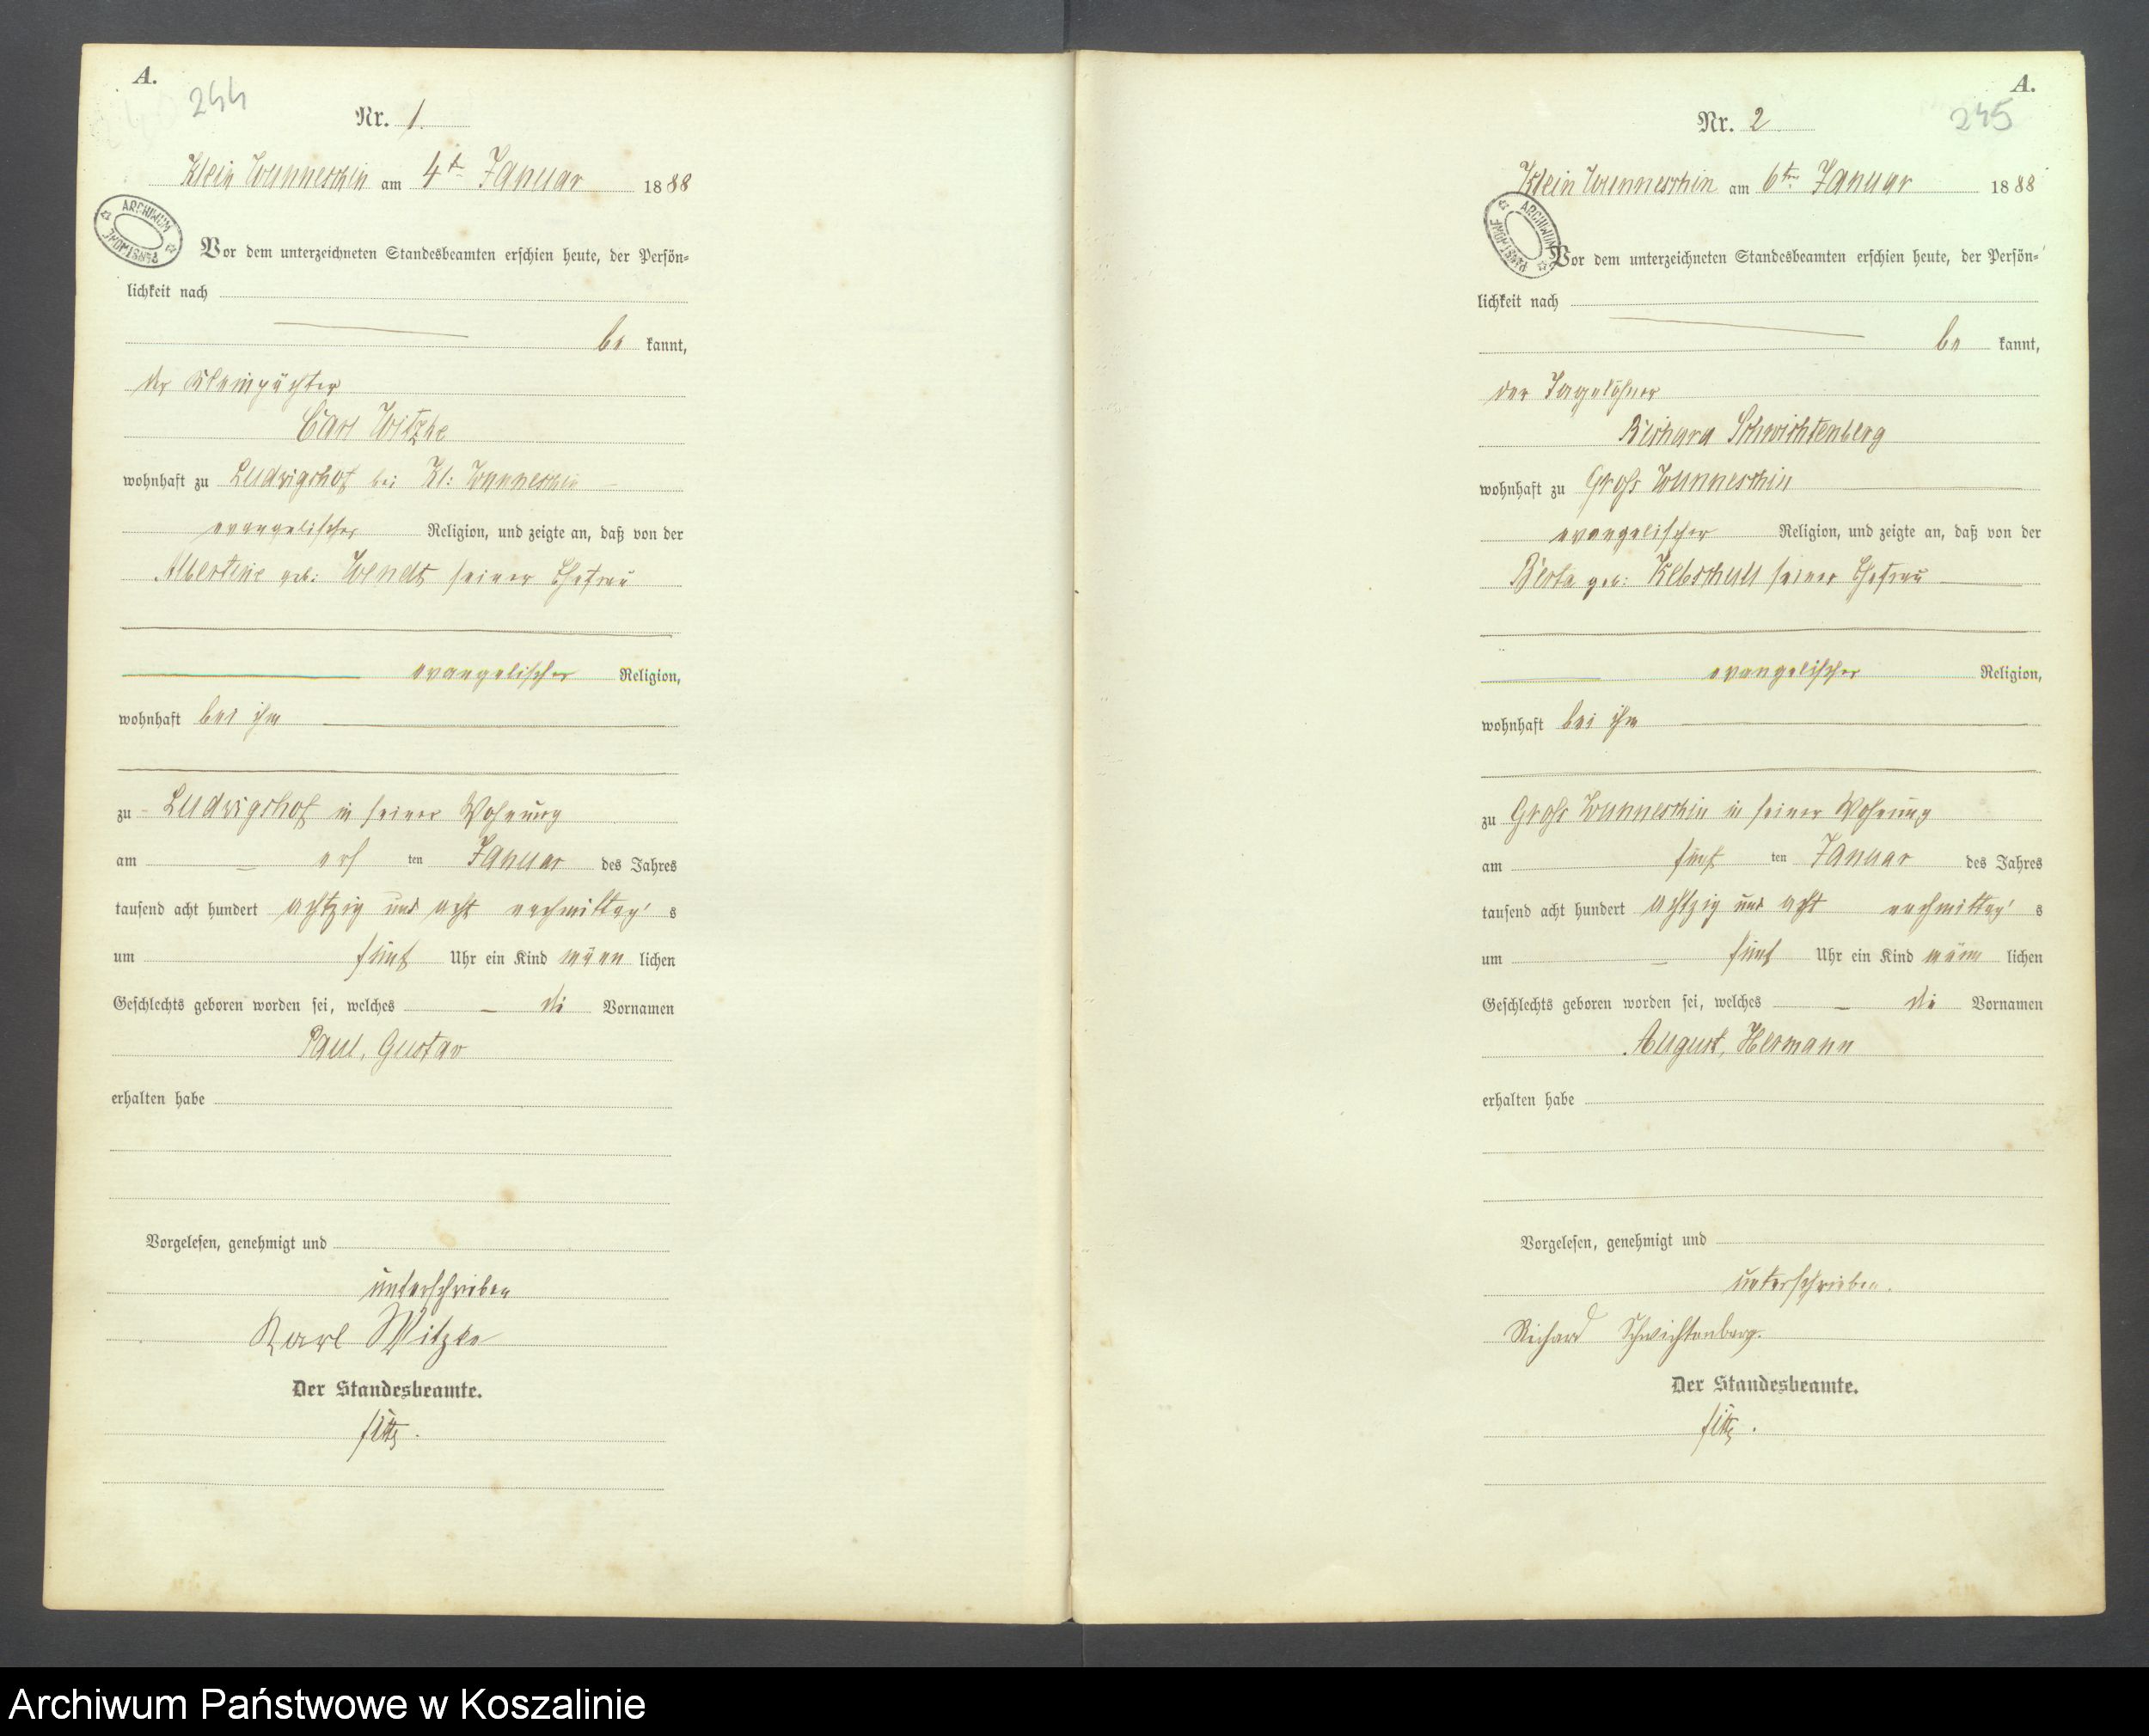 A.
244
Nr. 1.
Klein Wunneschin am 4t Januar 1888
ARCHIWUM PAŃSTWOWE
Vor dem unterzeichneten Standesbeamten erschien heute, der Persön=
lichkeit nach
be kannt,
der Kleinpächter
Carl Witzke
wohnhaft zu Ludwigshof bei Kl: Wunneschin
evangelischer Religion, und zeigte an, daß von der
Albertine geb: Wendt seiner Ehefrau
evangelischer Religion,
wohnhaft bei ihm
zu Ludwigshof in seiner Wohnung
am ten Januar des Jahres
tausend acht hundert achtzig und acht nachmittag' s
um fünf Uhr ein Kind männ lichen
Geschlechts geboren worden sei, welches die Vornamen
Paul, Gustav
erhalten habe
Vorgelesen, genehmigt und
unterschrieben
Karl Witzke
Der Standesbeamte.
A.
245
Nr. 2
Klein Wunneschin am 6ten Januar 1888
ARCHIWUM PAŃSTWOWE
Vor dem unterzeichneten Standesbeamten erschien heute, der Persön=
lichkeit nach
be kannt,
der Tagelöhner
Richard Schwichtenberg
wohnhaft zu Groß Wunneschin
evangelischer Religion, und zeigte an, daß von der
Berta geb: seiner Ehefrau
evangelischer Religion,
wohnhaft bei ihm
zu Groß Wunneschin in seiner Wohnung
am fünf ten Januar des Jahres
tausend acht hundert achtzig und acht nachmittag' s
um fünf Uhr ein Kind männ lichen
Geschlechts geboren worden sei, welches die Vornamen
August, Hermann
erhalten habe
Vorgelesen, genehmigt und
unterschrieben.
Richard Schwichtenberg.
Der Standesbeamte.
Archiwum Państwowe w Koszalinie